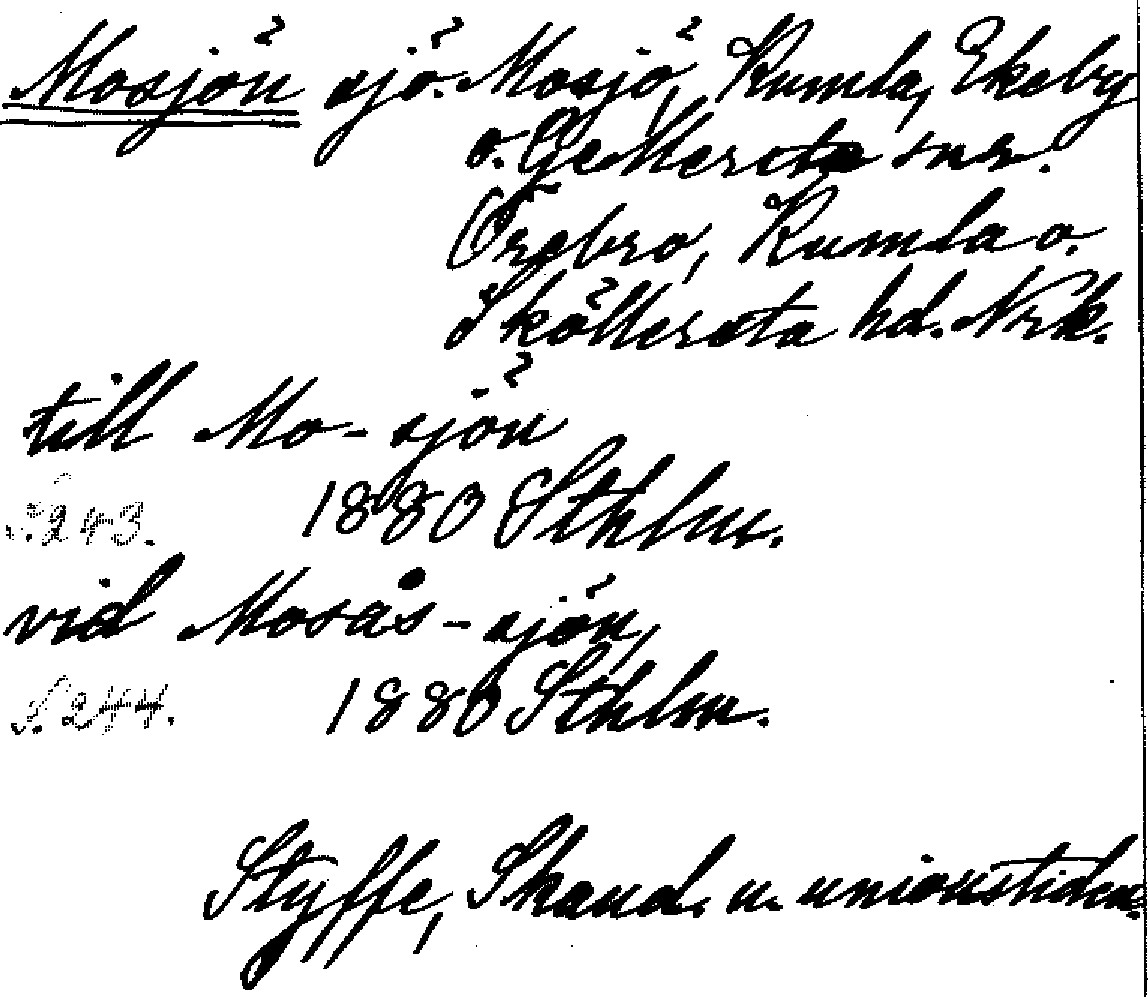 Mosjön sjö. Mosjö, Kumla, Ekeby
o. Gällersta snr.
Örebro, Kumla o.
Sköllersta hd. Nrk.
till Mo-sjön
S. 243. 1880 Sthlm.
vid Mosås-sjön,
S. 244. 1880 Sthlm.
Styffe, Skand. u. unionstiden.